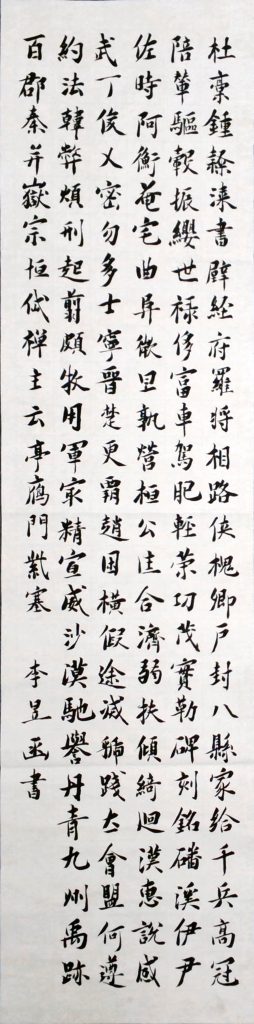 杜稾鍾隸漆書壁經府羅將相路俠槐卿戶封八縣家給千兵高冠
陪輦驅轂振纓世祿侈富車駕肥輕策功茂實勒碑刻銘磻溪伊尹
佐時阿衡奄宅曲阜微旦孰營桓公匡合濟弱扶傾綺迴漢惠說感
武丁俊乂密勿多士寧晉楚更霸趙困橫假途滅虢踐土會盟何遵
約法韓弊煩刑起翦頗牧用軍最精宣威沙漠馳譽丹青九州禹跡
百郡秦并嶽宗恒岱禪主云亭鴈門紫塞 李昱函書